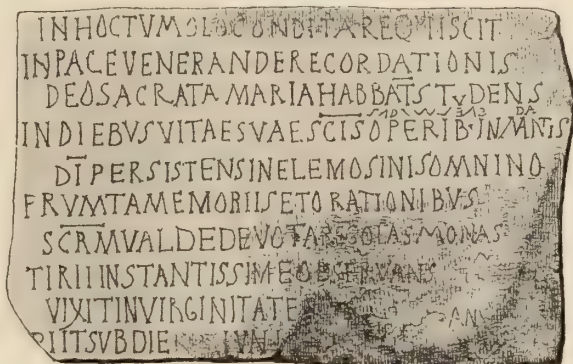 INHOCTVMOLOCONDITAREQVIISCIT
INPACEVENERANDERECORDATIONIS
DEOSACRATAMARIAHABBATSTVDENS
INDIEBVSVITAESVAESCISOPERIB·INMANTIS
DIPERSISTENSINELEMOSINISOMNINO
FRVMTAMEMORIISETORATIONIBVS
SCRMVALDEDEVOTA
TIRIIINSTANTISSIMEOBSERVANS
VIXITINVIRGINITATE
RIITSVBDIE